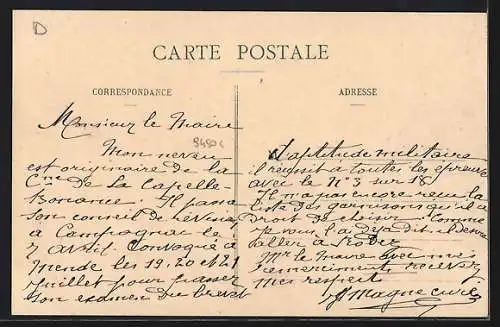 D
CARTE POSTALE
CORRESPONDANCE
ADRESSE
Monsieur le Maire
Mon neveu
est originaire de la
Cne de La Capelle-
Bonance. Il passa
son conseil de révision
à Campagnac le
7 avril. Convoqué à
Mende les 19, 20 et 21
juillet pour passer
son examen du brevet
d'aptitude militaire
il réussit à toutes les épreuves
avec le N° 3 sur 18
Il n'a pas encore reçu la
liste des garnisons qu'il a
Droit de choisir. Comme
je vous l'a déjà dit il désire
aller à Rodez
Mr le Maire avec mes
remerciments recevez
mes respects
Magne curé